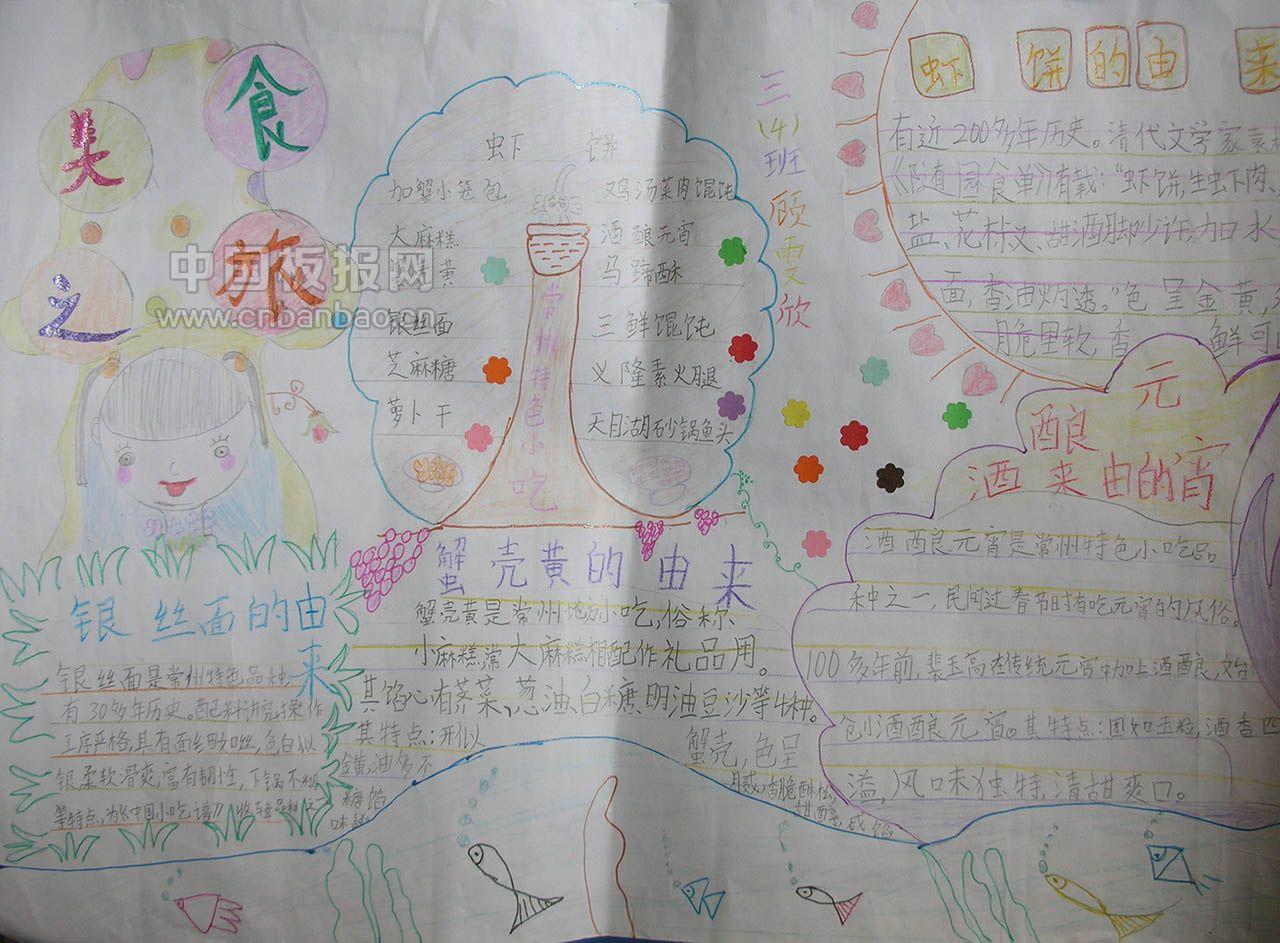 美食之旅
中国板报网
www.cnbanbao.cn
虾 饼
加蟹小笼包
大麻糕
黄
银丝面
芝麻糖
萝卜干
常州特色小吃
鸡汤菜肉馄饨
酒酿元宵
马蹄酥
三鲜馄饨
义隆素火腿
天目湖砂锅鱼头
三(4)班顾雯欣
虾饼的由来
有近200多年历史。清代文学家袁
《随园食单》有载:“虾饼,生虾肉、
盐、花椒、甜酒脚少许,加水
面,香油灼透。”色呈金黄,
脆里软,香 鲜可
银丝面的由来
银丝面是常州特色品种
有30多年历史。配料讲究,操作
工序严格,具有面细如丝,色白似
银柔软滑爽,富有韧性,下锅不糊
等特点,为《中国小吃谱》收辑品种之
蟹壳黄的由来
蟹壳黄是常州地方小吃,俗称
小麻糕,常大麻糕相配作礼品用。
其馅心有荠菜、葱油、白糖、明油豆沙等4种。
其特点:形似 蟹壳,色呈
金黄,油多不 腻,香脆酥松,
糖馅 甜醇,咸馅
味
酿元
酒来由的宵
酒酿元宵是常州特色小吃品
种之一,民间过春节时有吃元宵的风俗。
100多年前,裴玉高在传统元宵中加上酒酿,始
创酒酿元宵。其特点:团如玉粒,酒香四
溢,风味独特,清甜爽口。